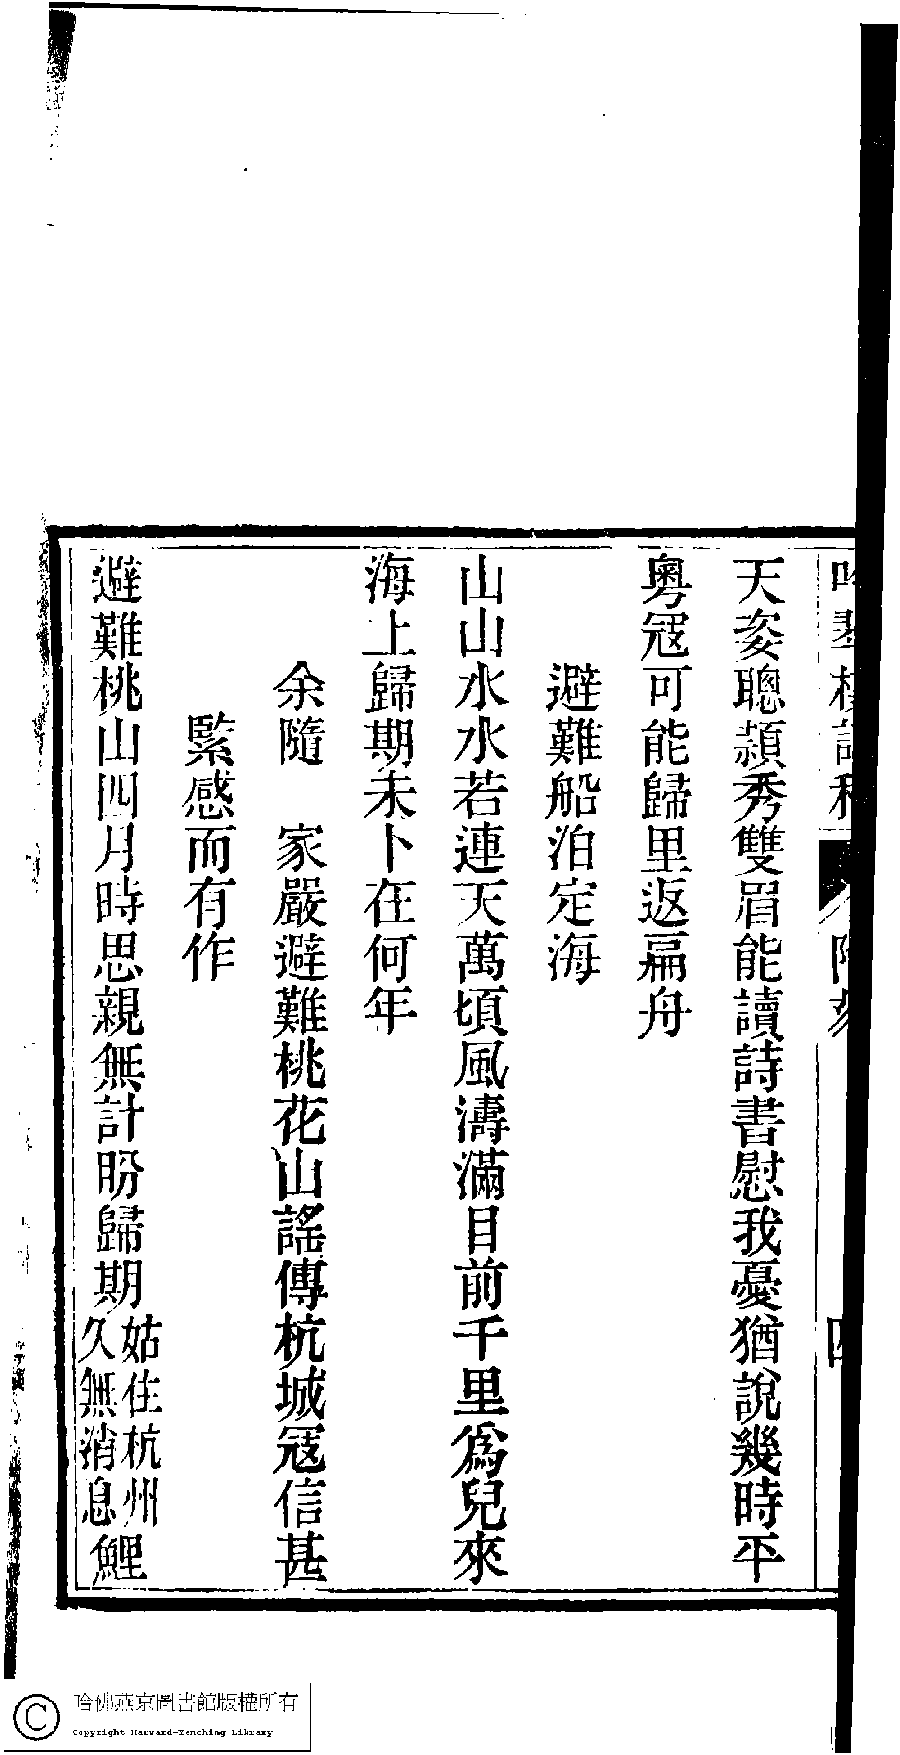 天姿聰頴秀雙眉能讀詩書慰我憂猶說幾時平
粵冦可能歸里返扁舟
避難船泊定海
山山水水若連天萬頃風濤滿目前千里為兒來
海上歸期未卜在何年
余隨　家嚴避難桃花山謠傳杭城冦信甚
緊感而有作
避難桃山四月時思親無計盼歸期姑住杭州久無消息鯉
哈佛燕京圖書館版權所有
Copyright Harvard-Yenching Library